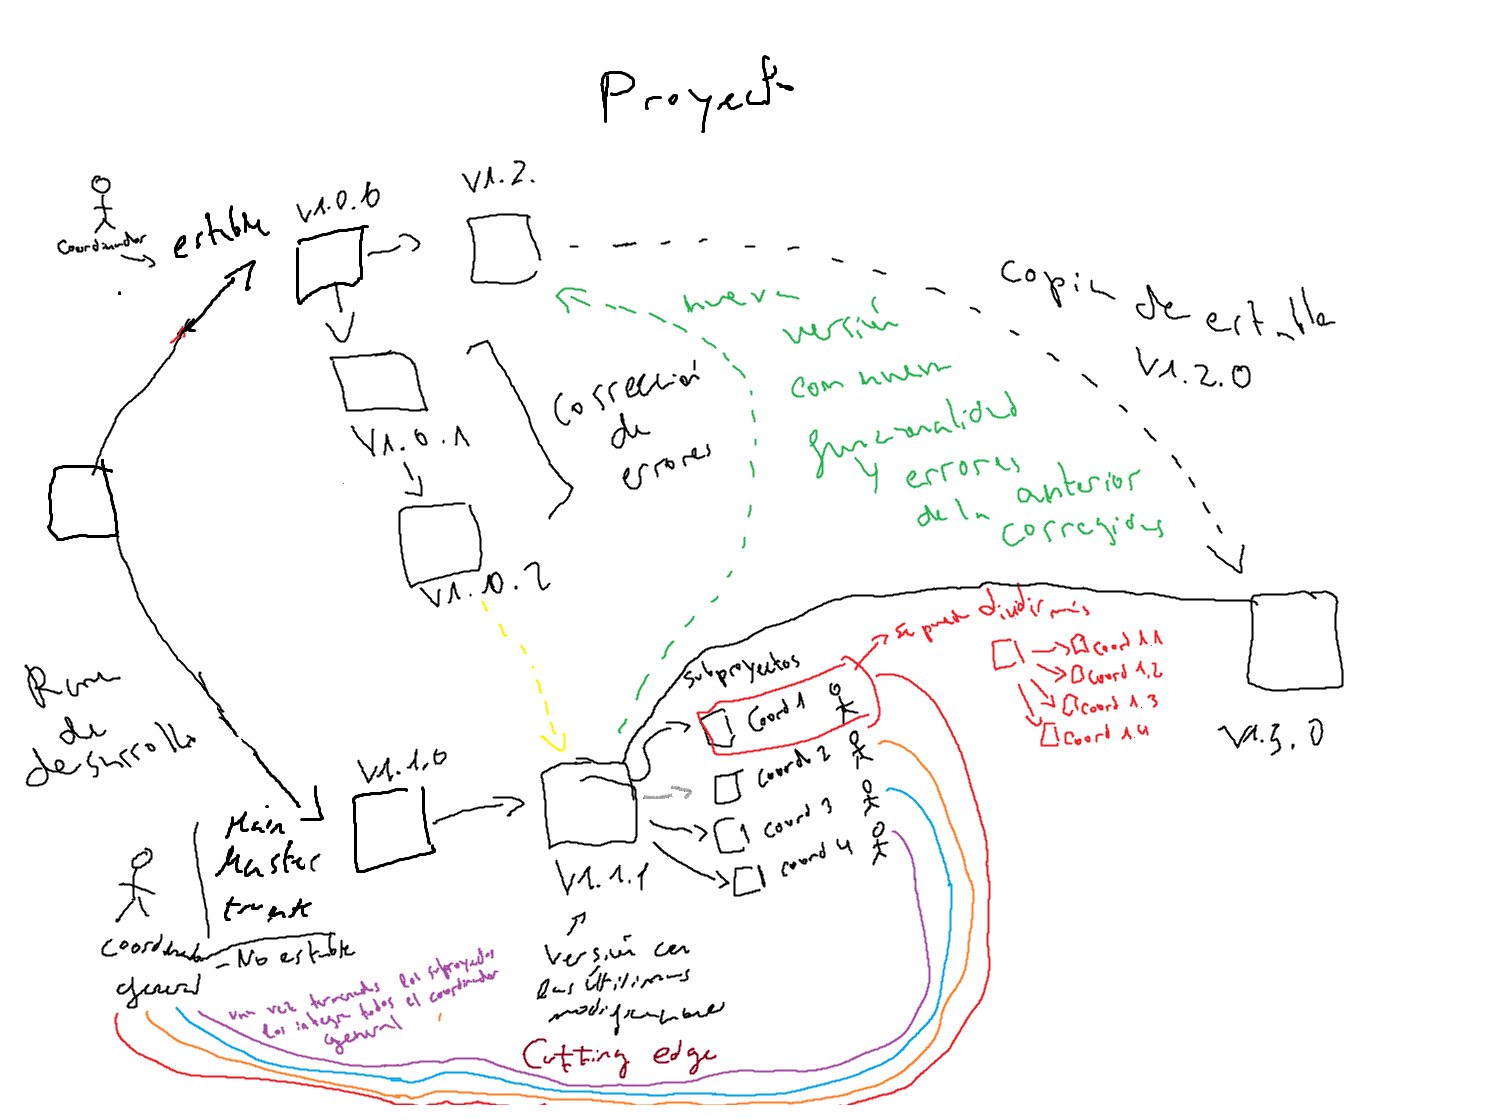 Proyecto
Coordinador
estable
V1.0.0
V1.2.
V1.0.1
V1.0.2
corrección
de
errores
nueva
versión
con nueva
funcionalidad
y errores
de la anterior
corregidos
copia
de estable
V1.2.0
Rama
de
desarrollo
Main
Master
trunk
- No estable
coordinador
general
V1.1.0
V1.1.1
versión con
las últimas
modificaciones
Cutting edge
subproyectos
Coord 1
coord 2
coord 3
coord 4
se puede dividir más
coord 1.1
coord 1.2
coord 1.3
coord 1.4
V1.3.0
una vez terminados los subproyectos
los integra todos el coordinador
general